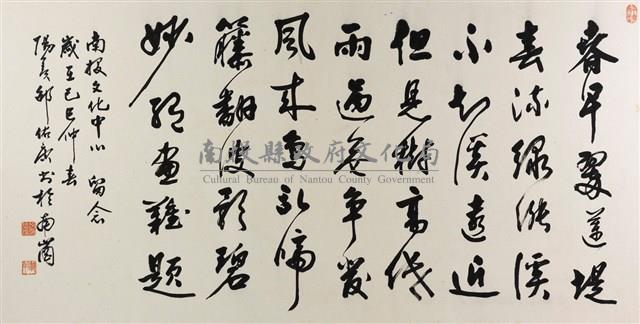 春早翠蓮堤
春流綠繞溪
不知溪遠近
但見樹高低
雨過花爭發
風來鳥亂啼
翻波影碧
妙絕畫難題
南投文化中心 留念
歲在己巳仲春
書於南崗
南投縣政府文化局
Cultural Bureau of Nantou County Government